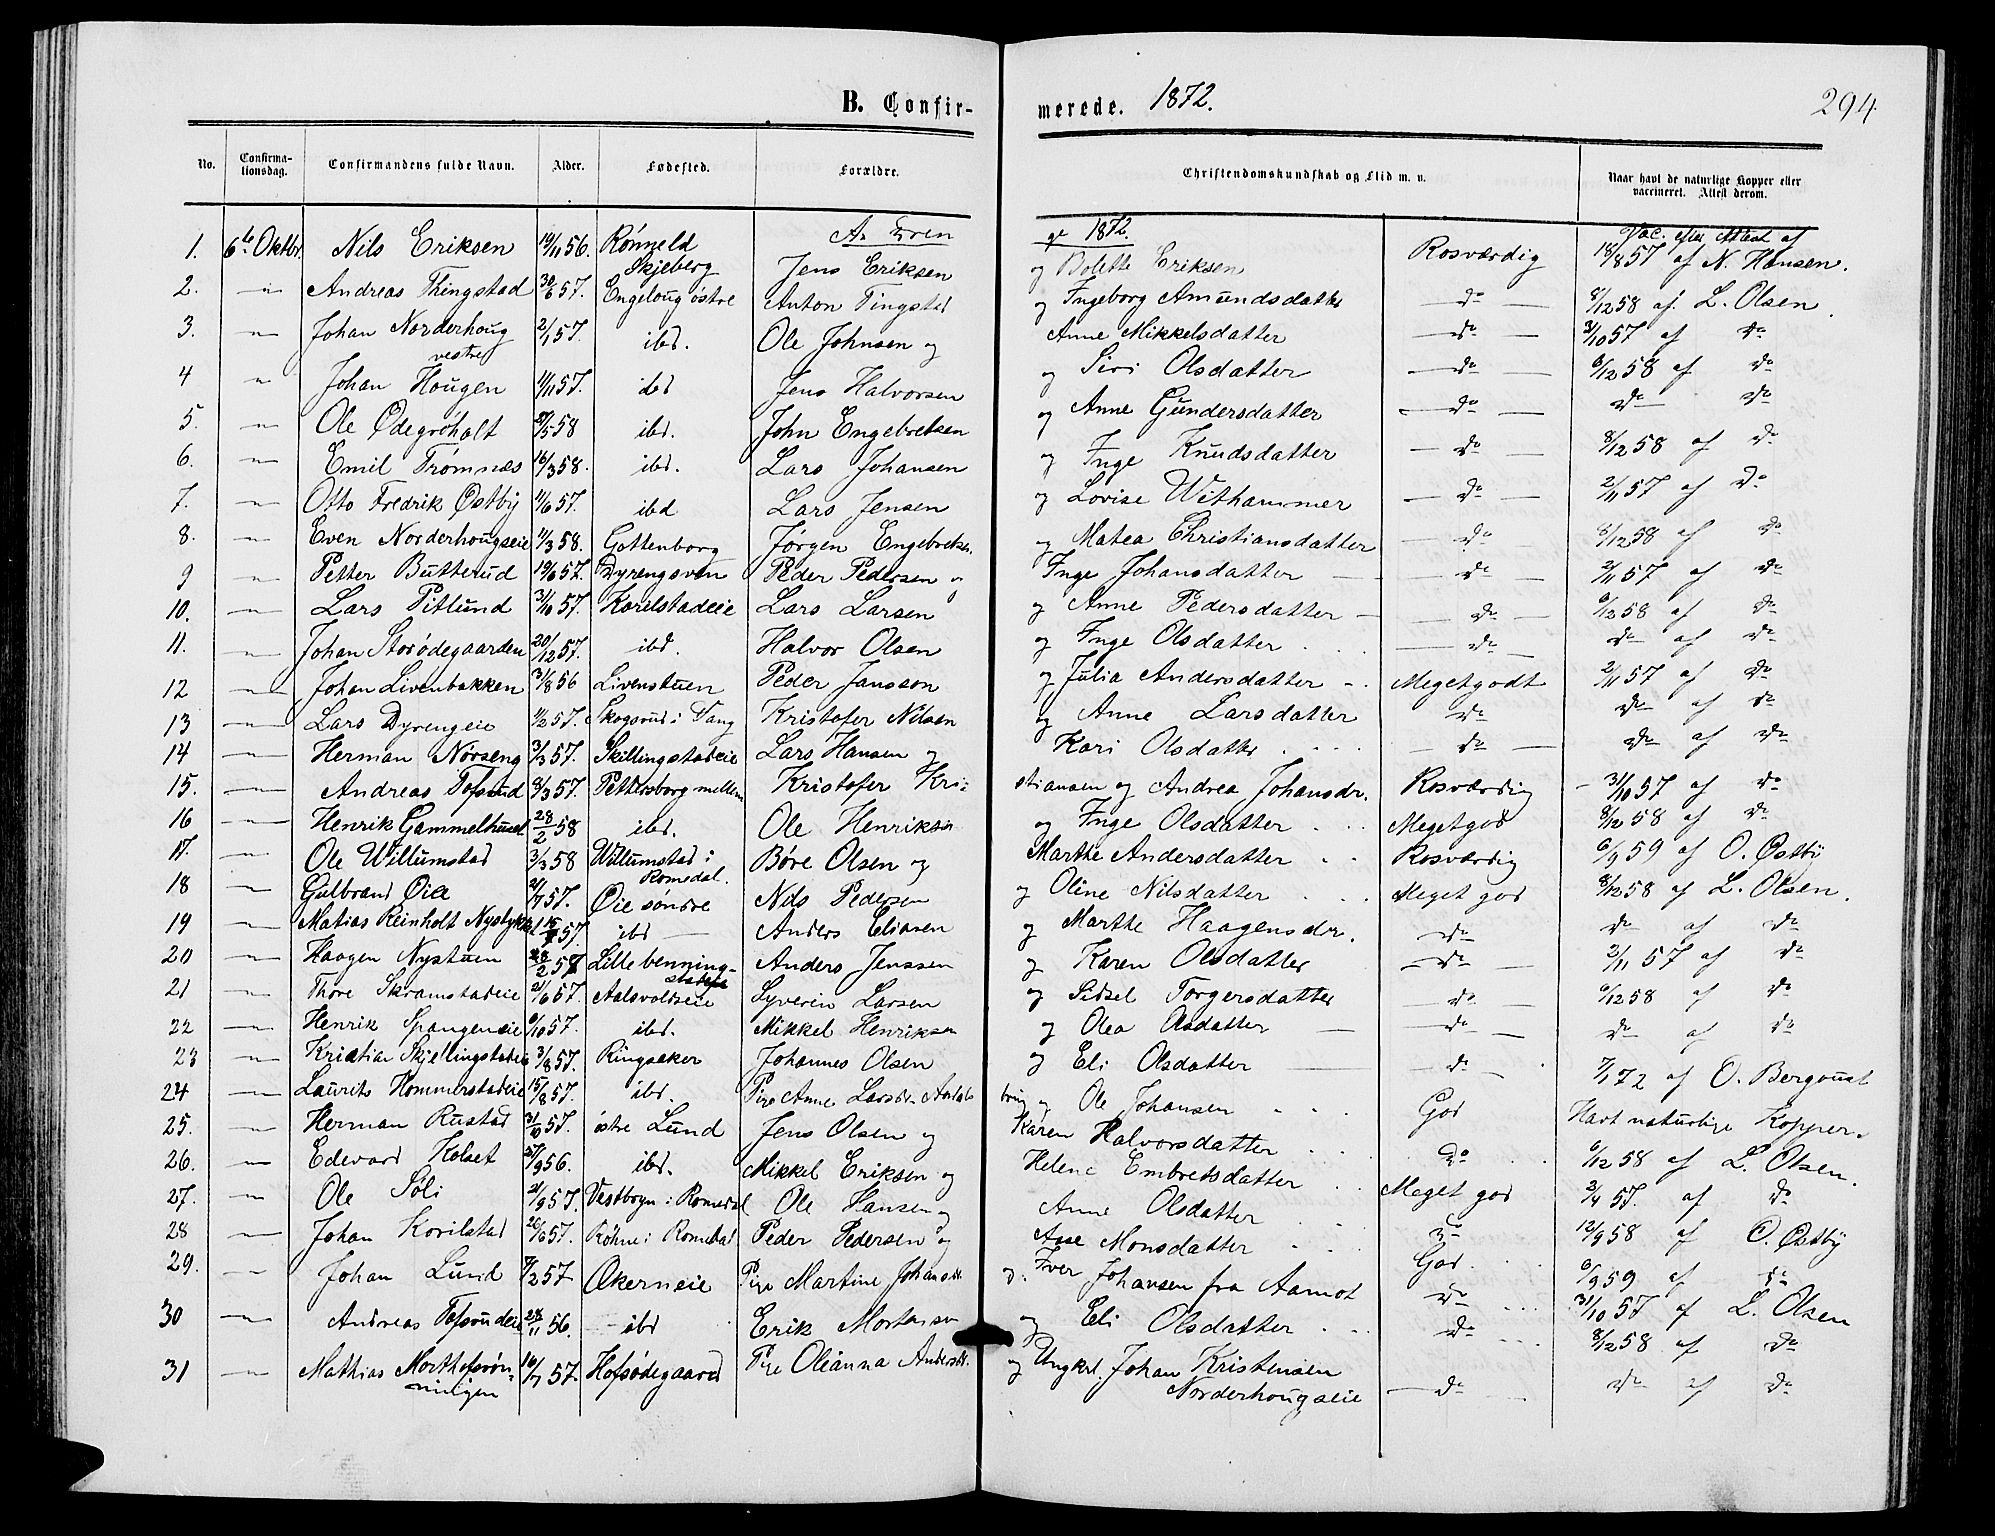 B. Confir-
merede. 1872.
294
No. Confirma-tionsdag. Confirmandens fulde Navn. Alder. Fødested. Forældre. Christendomskundskab og Flid m. v. Naar havt de naturlige Kopper eller vaccineret. Attest derom.
1872. Vac. efter Attest af
1. 6te Oktbr. Nils Eriksen 56. Skjeberg Jens Eriksen og Bolette Eriksen Rosværdig 18/8 57 af N. Hansen.
2. —"— Andreas Thingstad 30/6 57. Engeloug østre Anton Tingstad og Ingeborg Amundsdatter — do — 8/12 58 af L. Olsen
3. —"— Johan Norderhoug vestre 2/1 57. ibd. Ole Johnsen og Anne Mikkelsdatter — do — 3/10 57 af do
4 —"— Johan Hougen 11/11 57. ibd Jens Halvorsen og Siri Olsdatter — do — 6/12 58 af do
5. —"— Ole Ødegröholt 58 ibd. John Engebretsen og Anne Gundersdatter — do — do do
6. —"— Emil Trømnæs 16/3 58. ibd. Lars Johansen og Inge Knudsdatter — do — 8/12 58 af do
7. —"— Otto Fredrik Østby 11/6 57. ibd Lars Jensen og Lovise Withammer — do — 2/11 57 af do
8. —"— Even Norderhougseie 11/3 58. Gottenborg Jørgen Engebretsen og Matea Christiansdatter — do — 8/12 58 af do
9 —"— Petter Butterud 19/6 57. Dyrengsven Peder Pedersen og Inge Johansdatter — do — 2/11 57 af do
10. —"— Lars Pitlund 31/10 57. Korilstadeie Lars Larsen og Anne Pedersdatter — do — 6/12 58 af do
11. —"— Johan Storødegaarden 20/12 57. ibd. Halvor Olsen og Inge Olsdatter — do — do af do
12 —"— Johan Livenbakken 31/8 56 Livenstuen Peder Jansson og Julia Andersdatter Megetgodt 2/11 57 af do
13 —"— Lars Dyrengeie 11/2 57. Skogsrud i Vang Kristofer Nilsen og Anne Larsdatter do do af do
14 —"— Herman Nørseng 3/3 57. Skillingstadeie Lars Hansen og Kari Olsdatter — do — do af do
15. —"— Andreas Tofsrud 8/3 57. Pettersborg mellem Kristofer Kri-stiansen og Andrea Johansdr. Rosværdig 31/10 57 af do
16 —"— Henrik Gammelhuset 28/2 58 ibd. Ole Henriksen og Inge Olsdatter Megetgod 8/12 58 af do
17. —"— Ole Willumstad 3/3 58 Willumstad i Romedal. Böre Olsen og Marthe Andersdatter Rosværdig 6/9 59 af O. Østby
18 —"— Gulbrand Øie 21/7 57. Øie søndre Nils Pedersen og Oline Nilsdatter Meget god 8/12 58 af L. Olsen.
19 —"— Matias Reinholt 57. ibd Anders Eliasen og Marthe Haagensdr. do do af do
20 —"— Haagen Nystuen 57 Lille benning-stadeie Anders Jenssen og Karen Olsdatter — do — 2/11 57 af do
21 —"— Thore Skramstadeie 21/6 57. Aalsvoldseie Syverin Larsen og Sidsel Torgersdatter — do — 6/12 58 af do
22 —"— Henrik Spangeneie 6/10 57. ibd. Mikkel Henriksen og Olea Olsdatter — do — do af do
23 —"— Kristian Skjellingstadeie 3/8 57. Ringsaker Johannes Olsen og Eli Olsdatter — do 7/1 72 af O. Bergquist
24 —"— Laurits Hommerstadeie 15/8 57. ibd. Pige Anne Larsdr. og Ole Johansen God Havt naturlige Kopper.
25. —"— Herman Rustad 31/10 57. østre Lund Jens Olsen og Karen Halvorsdatter do 6/12 58 af L. Olsen.
26. —"— Edevard Holset 27/9 56. ibd. Mikkel Eriksen og Helene Embretsdatter Meget god 3/4 57. af do
27. —"— Ole Söli 21/9 57. Vestbryn i Romedal Ole Hansen og Anne Olsdatter do 12/9 58 af O. Østby
28 —"— Johan Korilstad 20/6 57. Röhne i Romedal Peder Pedersen og Aase Monsdatter God 6/9 59 af do
29. —"— Johan Lund 7/2 57 Økerneie Pige Martine Johansdt. og Iver Johansen fra Aamot do 31/10 57 af L. Olsen
30 —"— Andreas Tofsrudeie 28/11 56. ibd Erik Mortensen og Eli Olsdatter do 8/12 58 af do
31 —"— Mathias 16/7 57. Hofsødegaard Pige Oleanna Andersdt. og Ungkl. Johan Kristensen Norderhougseie — do do af do